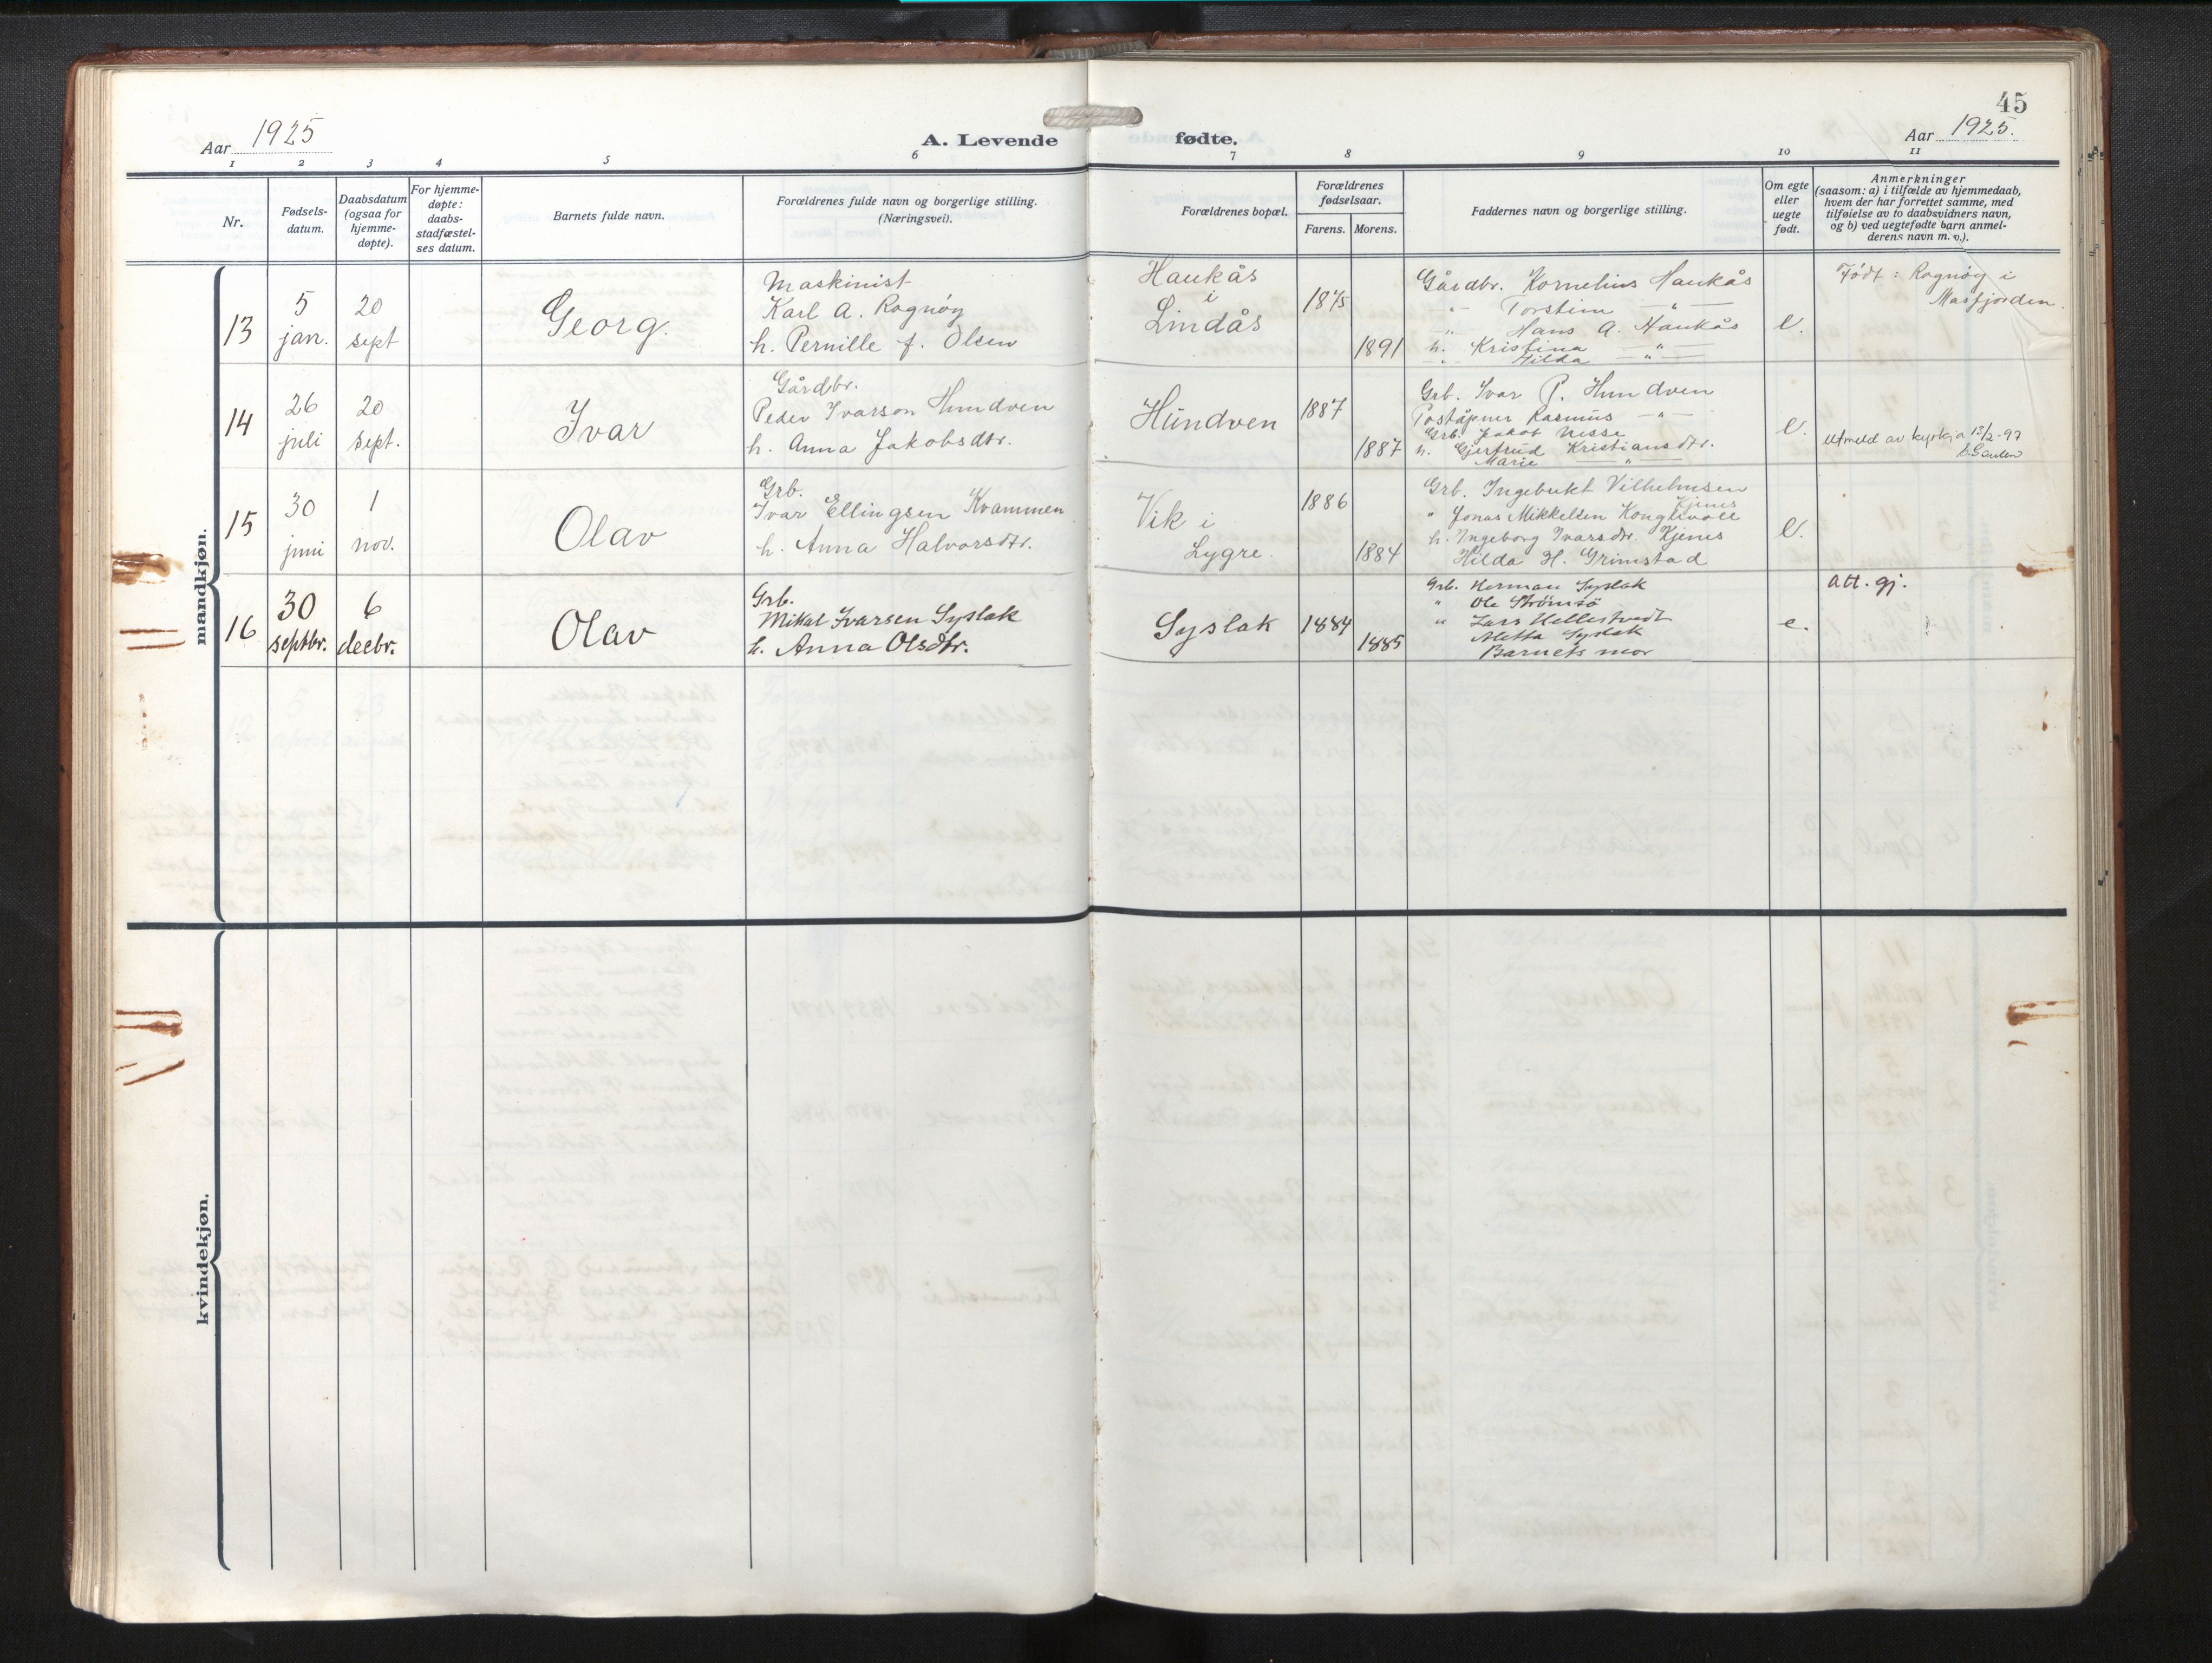 45
Aar 1925
A. Levende
fødte.
Aar 1925.
1 2 3 4 5 6 7 8 9 10 11
Nr.
Fødsels-
datum.
Daabsdatum
(ogsaa for
hjemme-
døpte).
For hjemme-
døpte:
daabs-
stadfæstel-
ses datum.
Barnets fulde navn.
Forældrenes fulde navn og borgerlige stilling.
(Næringsvei).
Forældrenes bopæl.
Forældrenes
fødselsaar.
Farens. Morens.
Faddernes navn og borgerlige stilling.
Om egte
eller
uegte
født.
Anmerkninger
(saasom: a) i tilfælde av hjemmedaab,
hvem der har forrettet samme, med
tilføielse av to daabsvidners navn,
og b) ved uegtefødte barn anmel-
derens navn m. v.).
mandkjøn.
13
5
jan.
20
sept
Georg.
Maskinist
Karl A. Rognøy
h. Pernille f. Olsen
Haukås
i
Lindås
1875
1891
Gårdbr. Kornelius Haukås
" Torstein — " —
" Hans A. Haukås
h. Kristina — " —
" Hilda — " —
e.
Født: Rognøy i
Masfjorden.
14
26
juli
20
sept.
Ivar
Gårdbr.
Peder Ivarson Hundven
h. Anna Jakobsdtr.
Hundven
1887
1887
Grb. Ivar P. Hundven
Poståpner Rasmus — " —
Grb. Jakob Nesse
h. Gjertrud Kristiansdtr.
Marie — " —
e.
Utmeld av kyrkja 13/2-97
15
30
juni
1
nov.
Olav
Grb.
Ivar Ellingsen Kvammen
h. Anna Halvorsdtr.
Vik i
Lygre.
1886
1884
Grb. Ingebrikt Vilhelmsen
Kjenes
" Jonas Mikkelsen Konglevoll
h. Ingeborg Ivarsdtr. Kjenes
Hilda H. Grimstad
e.
16
30
septbr.
6
decbr.
Olav
Grb.
Mikal Ivarsen Syslak
h. Anna Olsdtr.
Syslak
1884
1885
Grb. Herman Syslak
" Ole Strømsø
" Lars Hellestvedt
Aletta Syslak
Barnets mor
e.
Att. gj.
kvindekjøn.